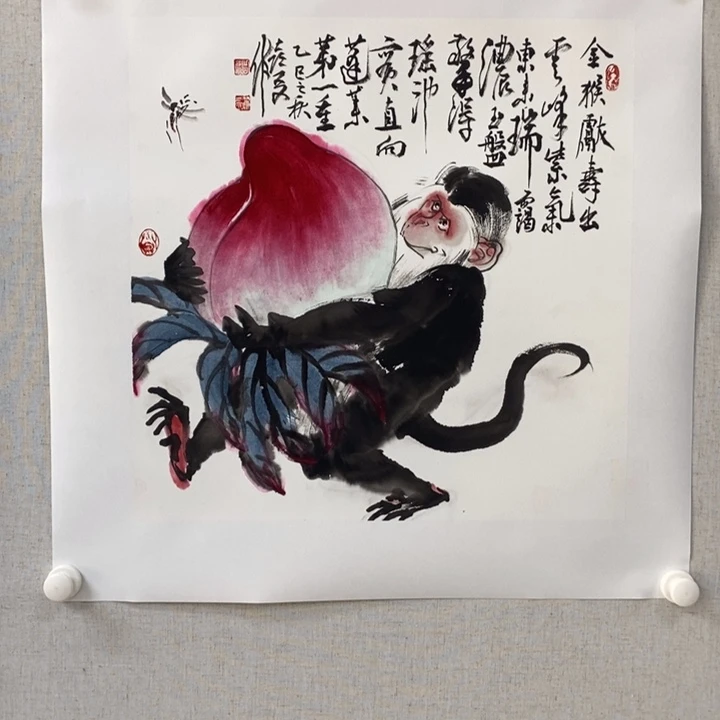 金猴獻壽出
雲峰紫氣
東來瑞靄
濃玉盤
擎得
瑤池
實直向
蓬萊
第一重
乙巳之秋